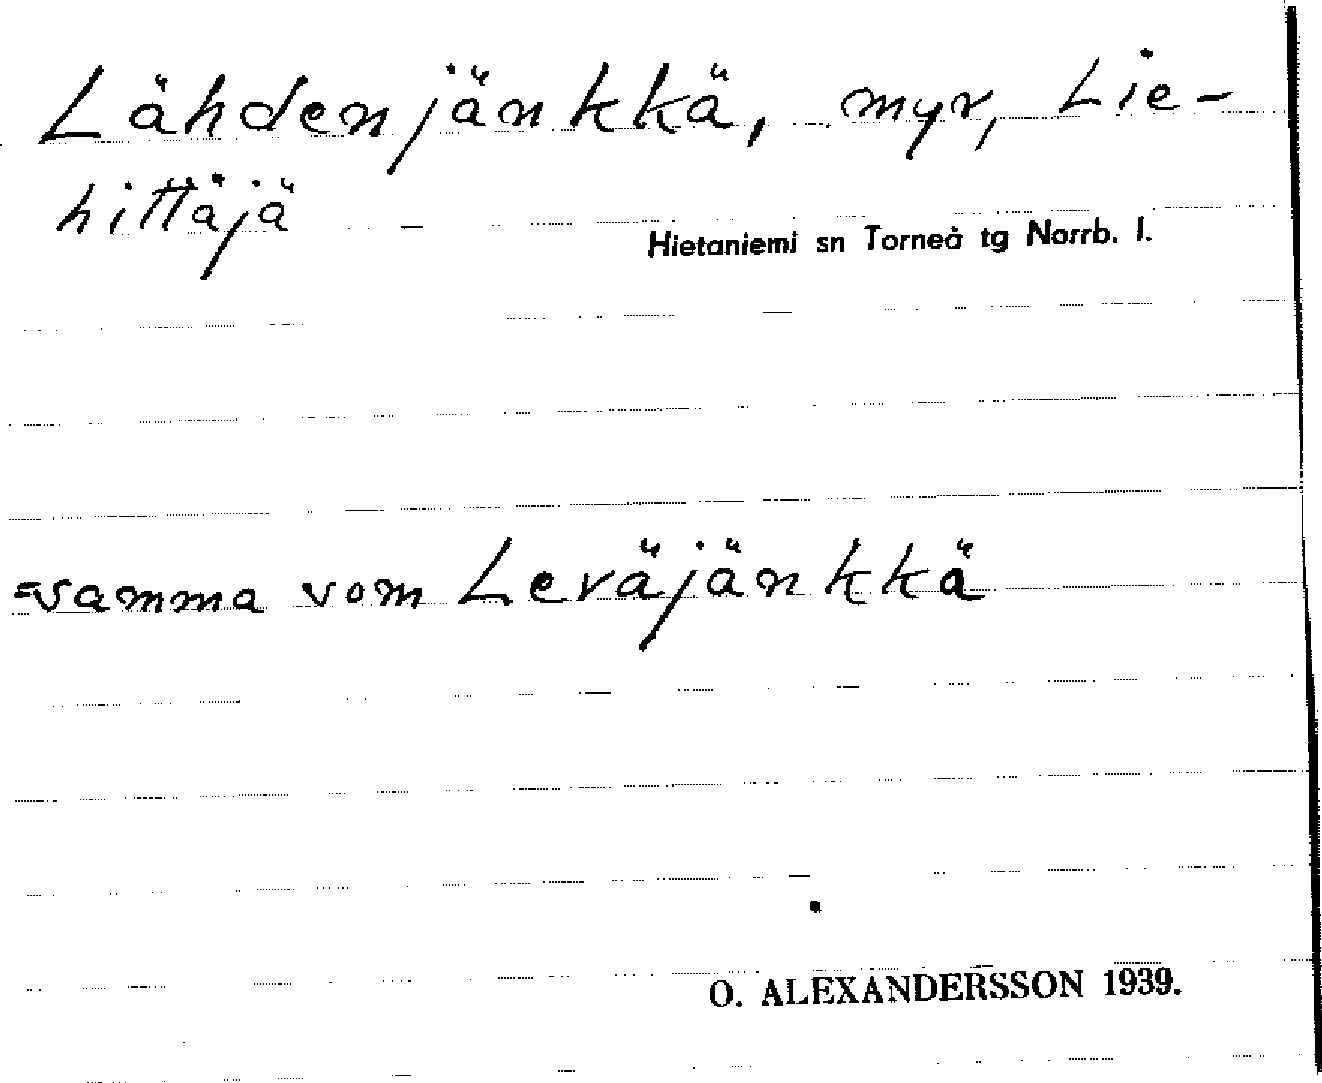 Lähdenjänkkä, myr, Lie-
hittäjä
Hietaniemi sn Torneå tg Norrb. l.
=samma som Leväjänkkä
O. ALEXANDERSSON 1939.